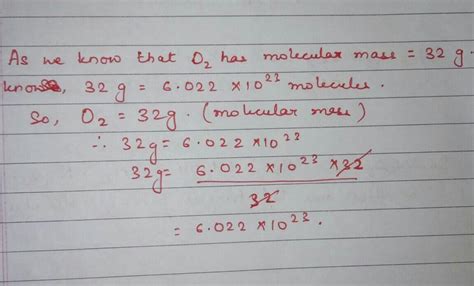 As we know that O₂ has molecular mass = 32 g.
32 g = 6.022 ×10²³ molecules.
So, O₂ = 32g. (molicular mess)
∴ 32g = 6.022 ×10²³
32g = 6.022 ×10²³ ×32
32
= 6.022 ×10²³.